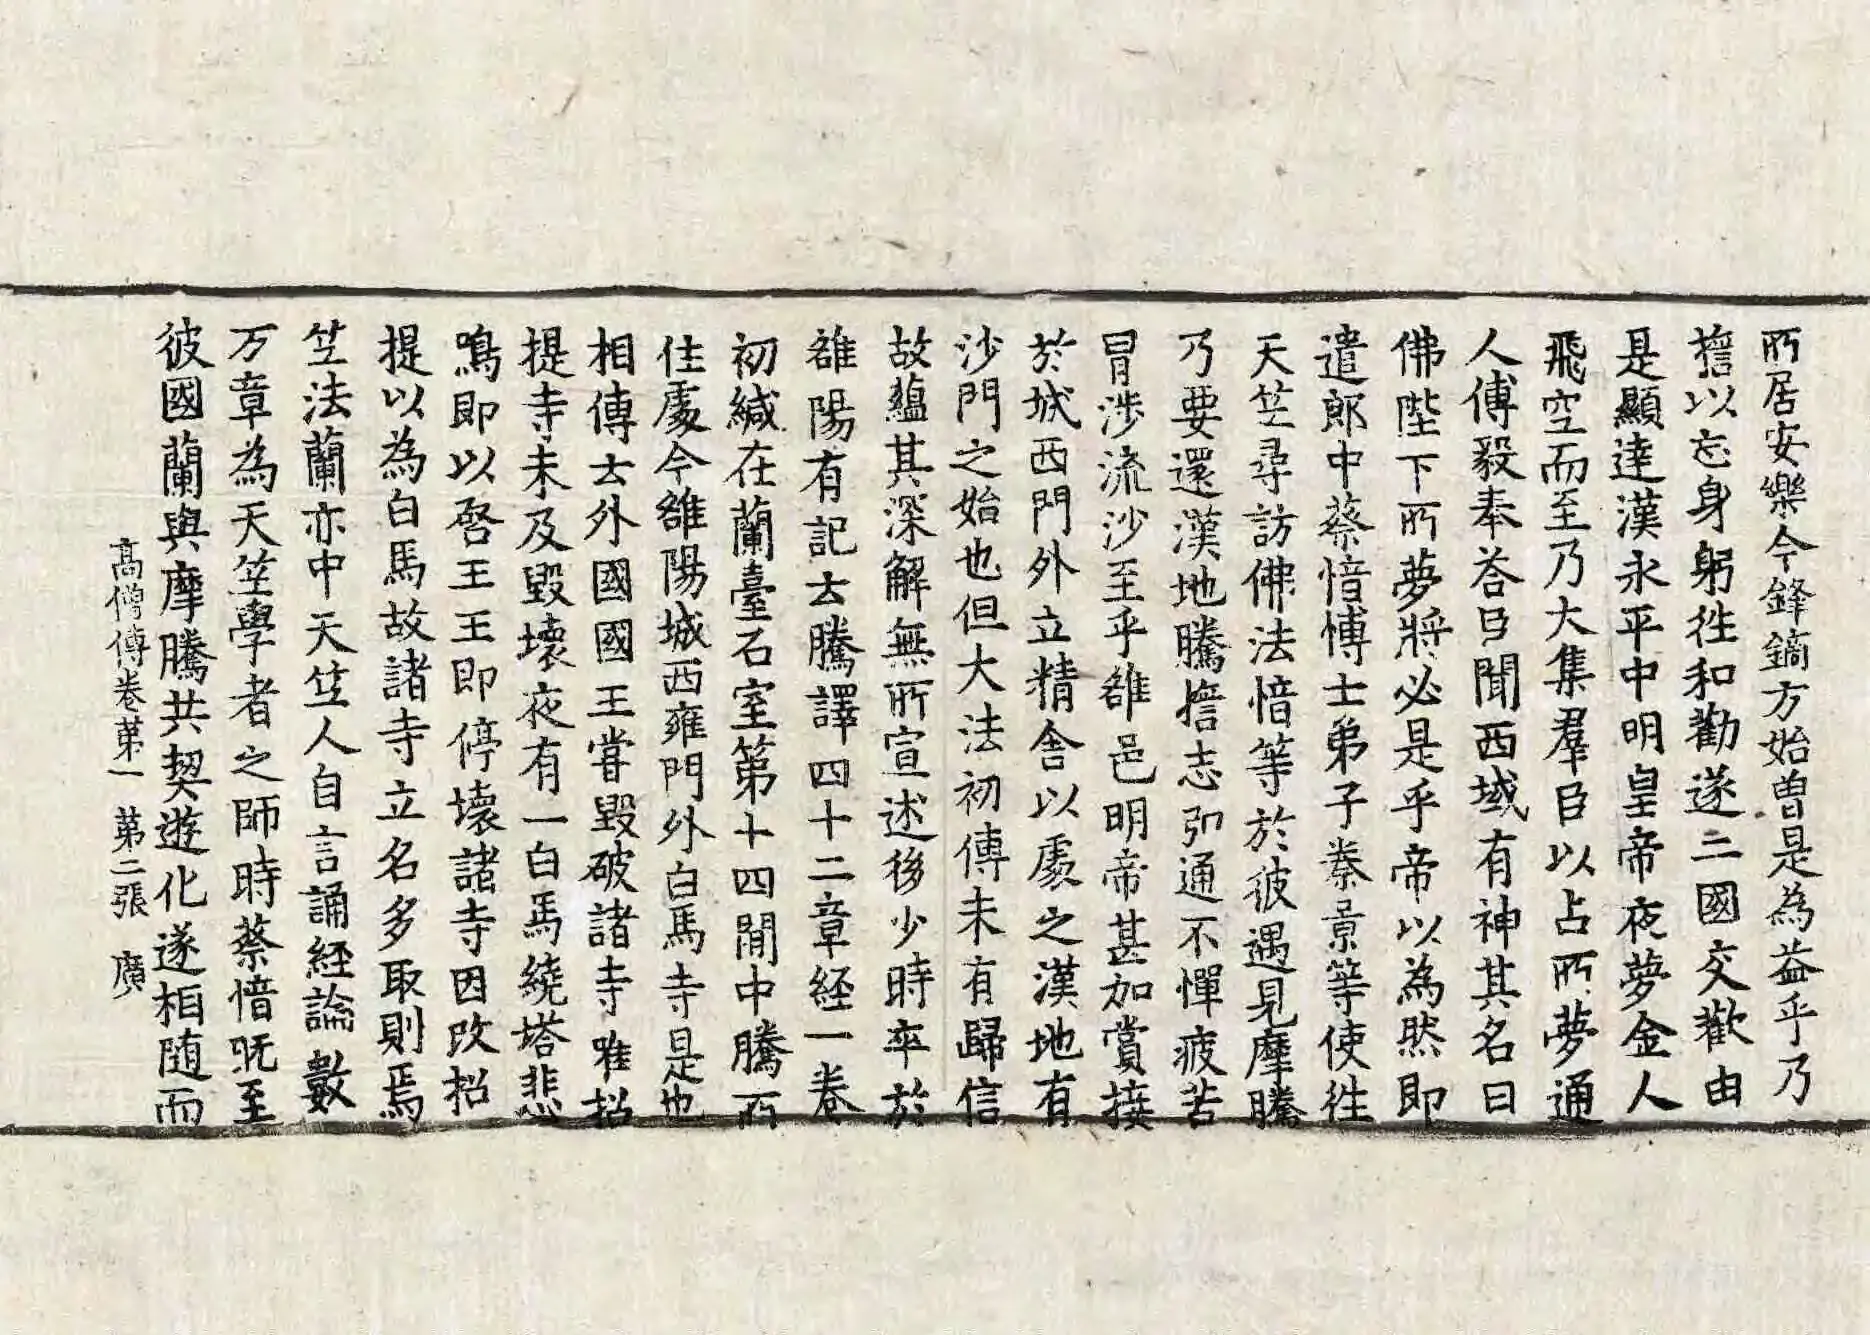 所居安樂今鋒鏑方始曽是為益乎乃
擔以忘身躬往和勸遂二國交歡由
是顯達漢永平中明皇帝夜夢金人
飛空而至乃大集羣臣以占所夢通
人傅毅奉荅臣聞西域有神其名曰
佛陛下所夢將必是乎帝以為然即
遣郎中蔡愔博士弟子秦景等使往
天竺尋訪佛法愔等於彼遇見摩騰
乃要還漢地騰擔志弘通不憚疲苦
冒涉流沙至乎雒邑明帝甚加賞接
於城西門外立精舍以處之漢地有
沙門之始也但大法初傳未有歸信
故蘊其深解無所宣述後少時卒於
雒陽有記云騰譯四十二章經一卷
初緘在蘭臺石室第十四間中騰所
住處今雒陽城西雍門外白馬寺是也
相傳云外國國王甞毀破諸寺唯招
提寺未及毀壞夜有一白馬繞塔悲
鳴即以啓王王即停壞諸寺因改招
提以為白馬故諸寺立名多取則焉
竺法蘭亦中天竺人自言誦經論數
万章為天竺學者之師時蔡愔旣至
彼國蘭與摩騰共契遊化遂相隨而
高僧傳卷第一　第二張　廣